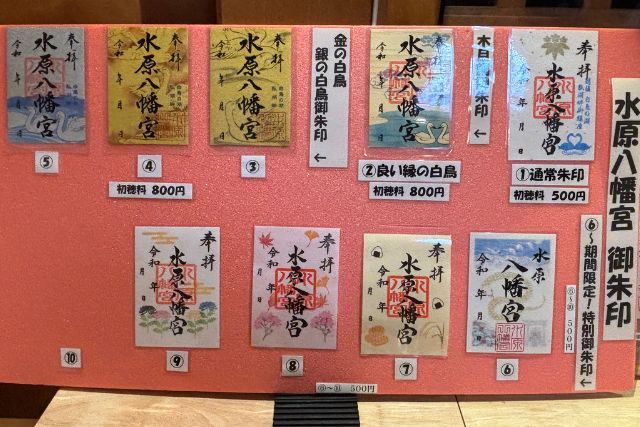 水原八幡宮 御朱印
奉拝
水原八幡宮
令和 年 月 日
①通常朱印
初穂料 500円
木白鳥御朱印←
奉拝
水原八幡宮
令和 年 月 日
②良い縁の白鳥
初穂料 800円
金の白鳥
銀の白鳥御朱印←
奉拝
水原八幡宮
令和 年 月 日
③
奉拝
水原八幡宮
令和 年 月 日
④
初穂料 800円
奉拝
水原八幡宮
令和 年 月 日
⑤
⑥~期間限定!特別御朱印←
500円
水原
八幡宮
令和 年 月 日
⑥
奉拝
水原八幡宮
令和 年 月 日
⑦
奉拝
水原八幡宮
令和 年 月 日
⑧
奉拝
水原八幡宮
令和 年 月 日
⑨
⑩
500円